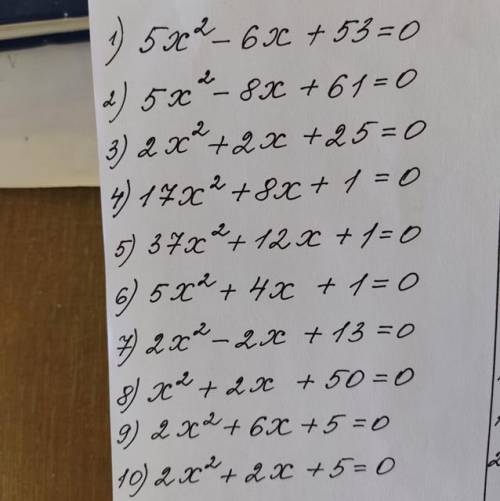 1) 5x² - 6x + 53 = 0
2) 5x² - 8x + 61 = 0
3) 2x² + 2x + 25 = 0
4) 17x² + 8x + 1 = 0
5) 37x² + 12x + 1 = 0
6) 5x² + 4x + 1 = 0
7) 2x² - 2x + 13 = 0
8) x² + 2x + 50 = 0
9) 2x² + 6x + 5 = 0
10) 2x² + 2x + 5 = 0